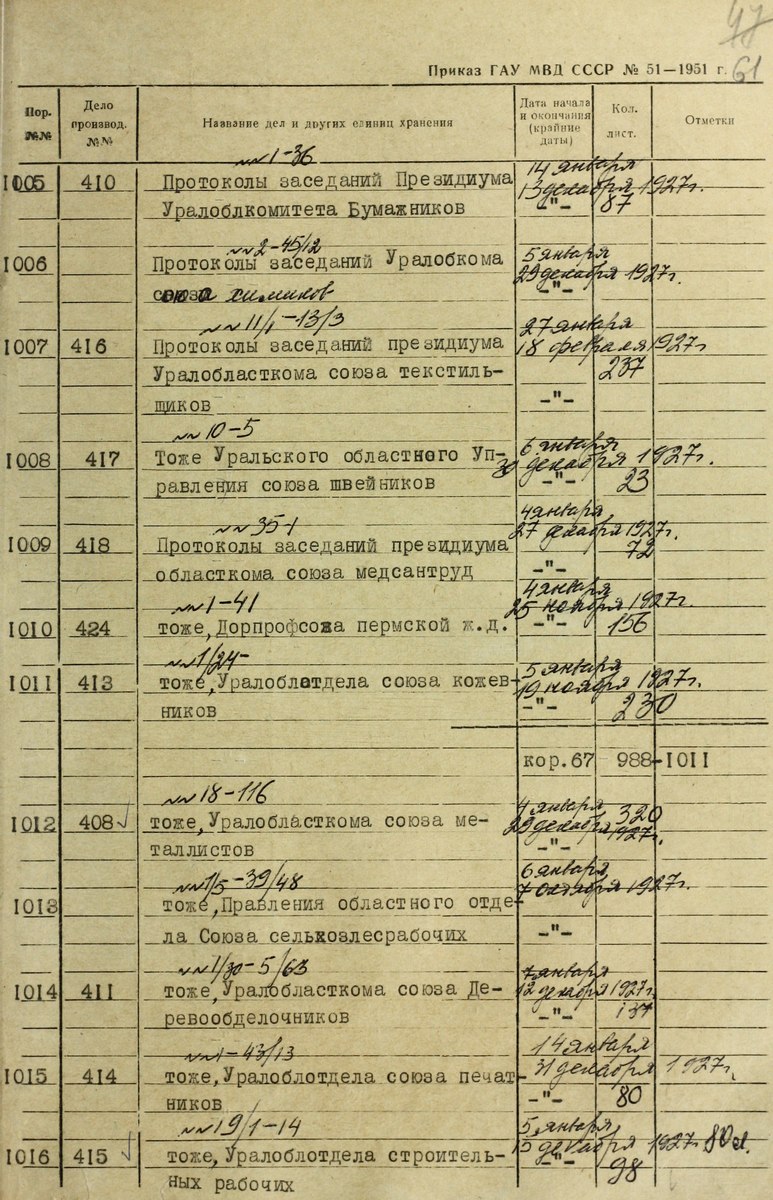 47
61
Приказ ГАУ МВД СССР № 51—1951 г.
Пор. №№
Дело производ. №№
Название дел и других единиц хранения
Дата начала и окончания (крайние даты)
Кол. лист.
Отметки
№№ 1-36
14 января
1005 410 Протоколы заседаний Президиума 13 декабря 1927г.
Уралоблкомитета Бумажников -"- 87
№№ 2-45/12
5 января
1006 Протоколы заседаний Уралобкома 29 декабря 1927г.
союза химиков -"-
№№ 11/1-13/3
27 января
1007 416 Протоколы заседаний президиума 18 февраля 1927г
Уралобласткома союза текстиль- 237
щиков -"-
№№ 10-5
6 января
1008 417 Тоже Уральского областного Уп- 30 декабря 1927г.
равления союза швейников -"- 23
№№ 35-1
4 января
1009 418 Протоколы заседаний президиума 27 декабря 1927г.
72
областкома союза медсантруд -"-
№№ 1-41
4 января
25 ноября 1927г.
1010 424 тоже, Дорпрофсожа пермской ж.д. -"- 156
№№ 1/24-
5 января
1011 413 тоже, Уралоблотдела союза кожев- 19 ноября 1927г.
ников -"- 230
кор.67 988-1011
№№ 18-116
4 января 320
1012 408 тоже, Уралобласткома союза ме- 29 декабря 1927г.
таллистов -"-
№№ 1/5-39/48
6 января
7 октября 1927г.
1013 тоже, Правления областного отде-
ла Союза селькозлесрабочих -"-
№№ 1/30-5/63
7 января
1014 411 тоже, Уралобласткома союза Де- 12 декабря 1927г.
ревообделочников -"- 137
№ 1-43/13
14 января
1015 414 тоже, Уралоблотдела союза печат- 31 декабря 1927г.
ников -"- 80
№№ 19/1-14
5 января
1016 415 тоже, Уралоблотдела строитель- 15 декабря 1927 80 л.
ных рабочих -"- 98